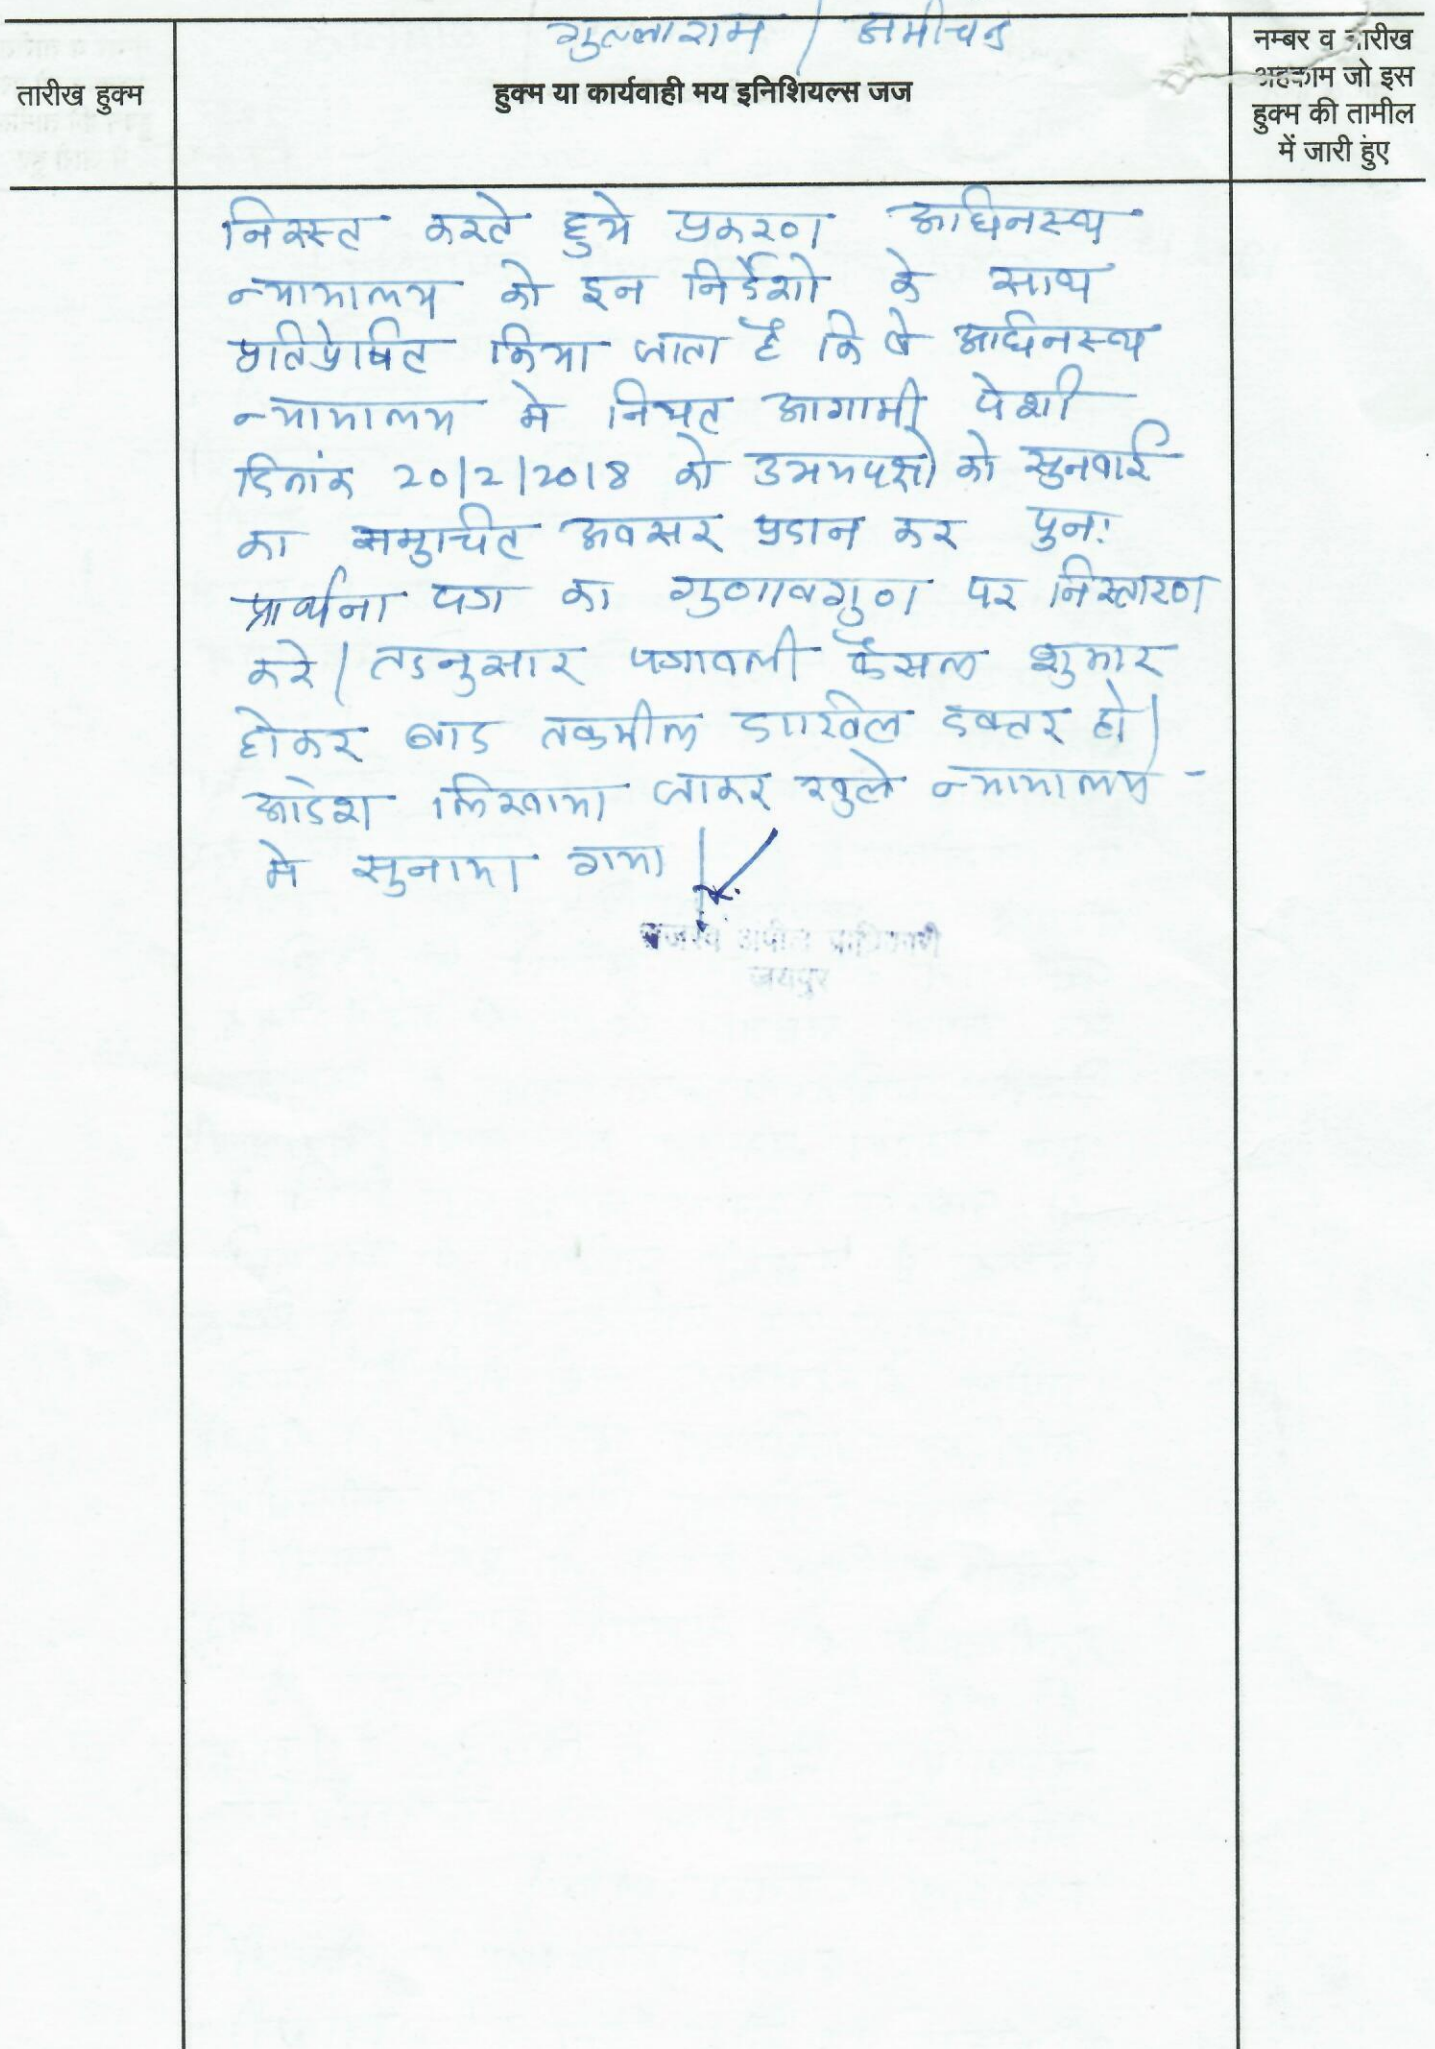 गुल्लाराम / अमीचन्द
तारीख हुक्म
हुक्म या कार्यवाही मय इनिशियल्स जज
नम्बर व तारीख
अहकाम जो इस
हुक्म की तामील
में जारी हुए
निरस्त करते हुये प्रकरण अधिनस्थ
न्यायालय को इन निर्देशो के साथ
प्रतिप्रेषित किया जाता है कि वे अधिनस्थ
न्यायालय मे नियत आगामी पेशी
दिनांक 20/2/2018 को उभयपक्षो को सुनवाई
का समुचित अवसर प्रदान कर पुनः
प्रार्थना पत्र का गुणावगुण पर निस्तारण
करे। तदनुसार पत्रावली फैसल शुमार
होकर बाद तकमील दाखिल दफ्तर हो।
आदेश लिखाया जाकर खुले न्यायालय -
मे सुनाया गया।
राजस्व अपील प्राधिकारी
जयपुर